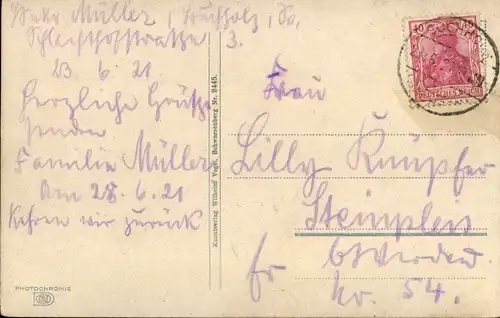 Müller, Buchholz, Sa,
Schlachthofstrasse 3.
23 6. 21
Herzliche Grüsse
senden
Familie Müller
Am 28. 6. 21
Kehren wir zurück
PHOTOCHROMIE
Kunstverlag Wilhelm Vogel, Schwarzenberg Nr. 2445.
40 40
Deutsches Reich
Frau
Lilly Knüpfer
Steinpleis
b/Werdau
Nr. 54.